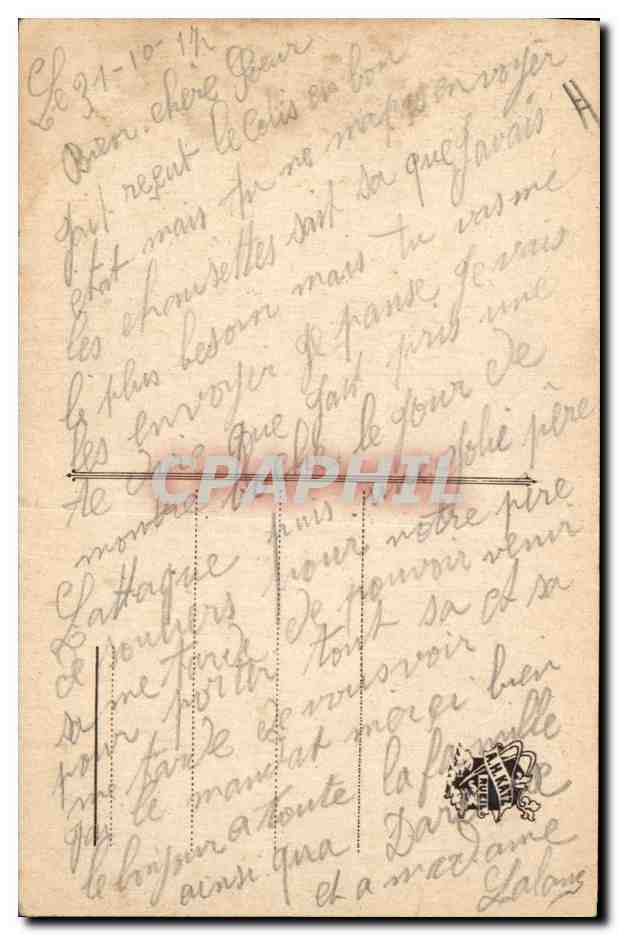 Le 31-10-17
Bien chère Soeur
jait reçut le Colis en bon
état mais tu ne ma pas envoyér
les chausettes sait sa que Javais
le plus besoin mais tu vas mé
les envoyer je panse Je vais
te dire que jait pris une
montre le jour de
Lattaque puis jolie père
de souliers pour notre père
sa me tarde de pouvoir venir
pour portér tout sa et sa
me tarde de vous voir
le mandat merci bien
le bonjour a toute la famille
ainsi qua
et a madame
Lalanne
CPAPHIL
A.H. KATZ
RUEIL